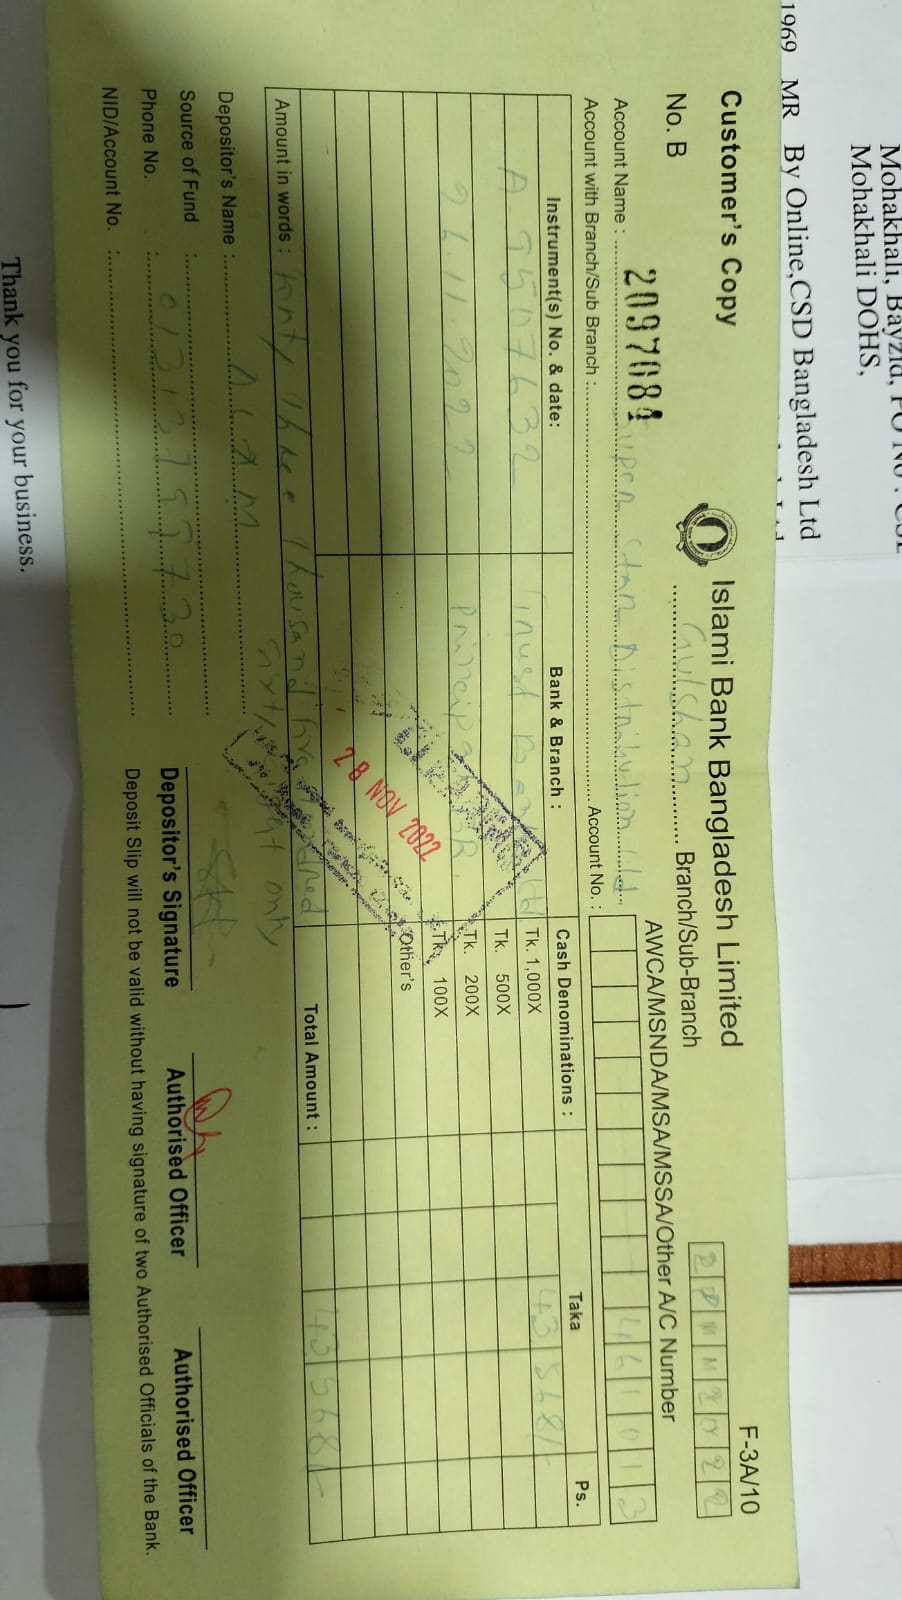 Mohakhali, Bayzid, PO No : CSL
Mohakhali DOHS,
1969 MR By Online,CSD Bangladesh Ltd
Customer's Copy
Islami Bank Bangladesh Limited
F-3A/10
No. B 2097084
Gulshan Branch/Sub-Branch
AWCA/MSNDA/MSA/MSSA/Other A/C Number
Account Name : Super Star Distribution Ltd.
Account with Branch/Sub Branch : Account No. : 461013
Instrument(s) No. & date: Bank & Branch : Cash Denominations : Taka Ps.
A 9507632 Trust Bank Ltd Tk. 1,000X 43568/-
Tk. 500X
26.11.2022 Principal BR. Tk. 200X
Tk. 100X
Other's
28 NOV 2022
Total Amount : 43568/-
Amount in words : Forty Three Thousand five Hundred
Sixty Eight only
Depositor's Name : ALAM
Source of Fund :
Phone No. :
NID/Account No. :
Depositor's Signature Authorised Officer Authorised Officer
Deposit Slip will not be valid without having signature of two Authorised Officials of the Bank.
Thank you for your business.